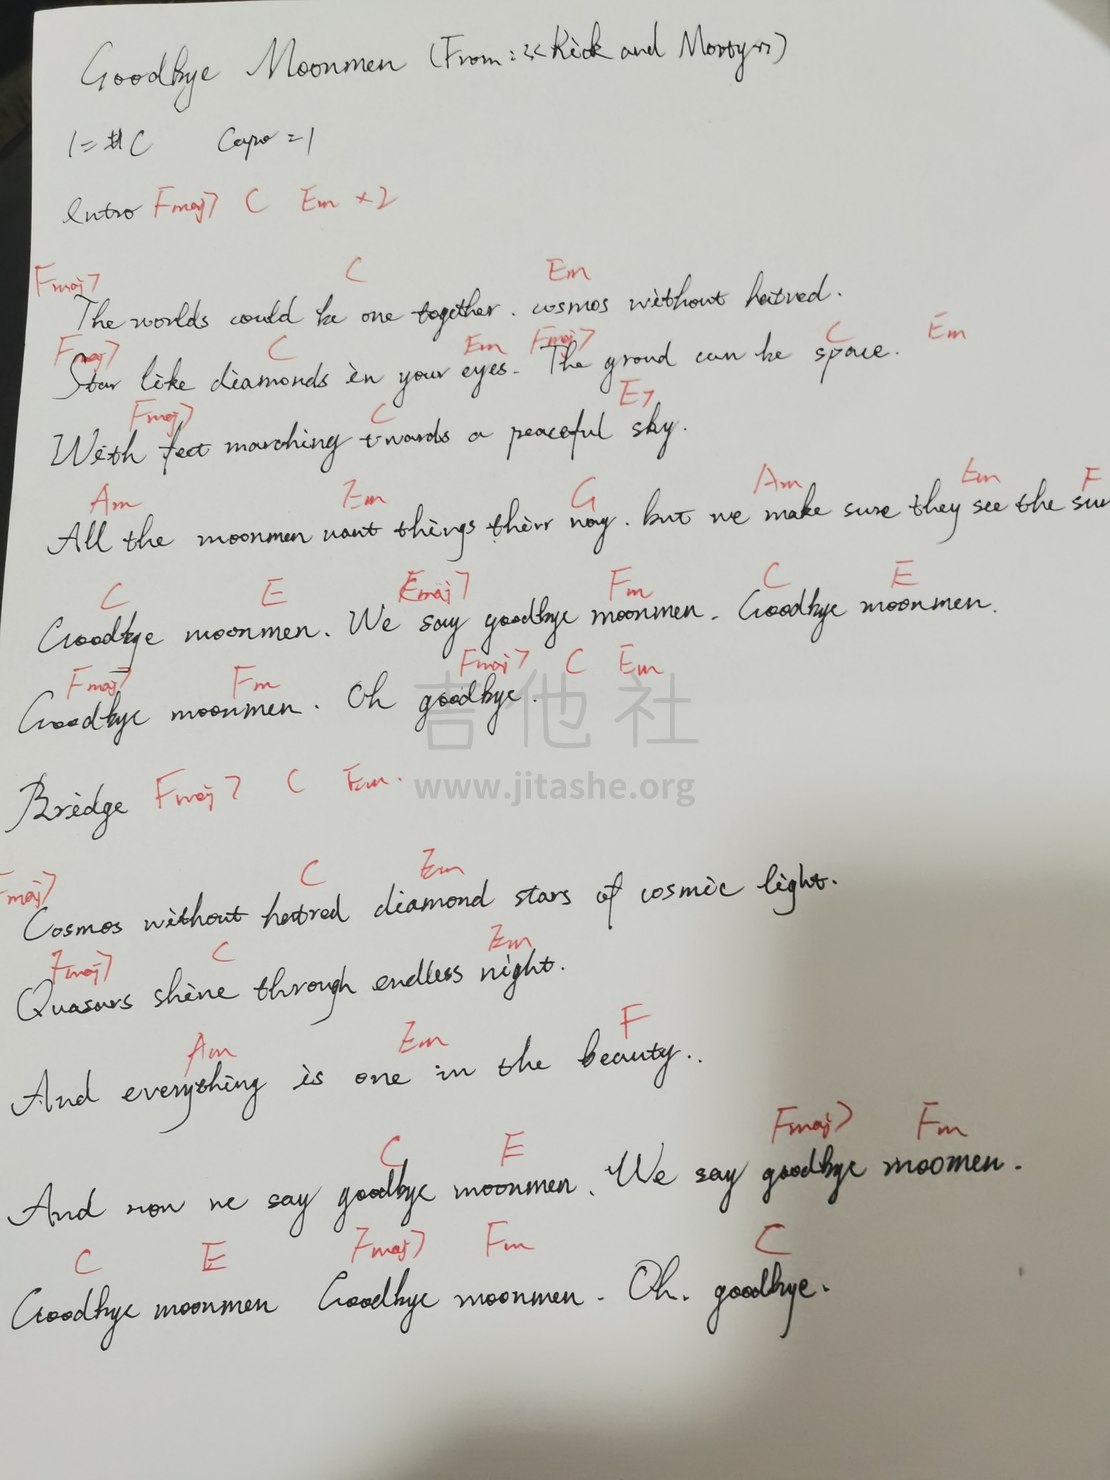 Goodbye Moonmen (From:《Rick and Morty》)
1=#C Capo=1
Intro Fmaj7 C Em ×2
Fmaj7 C Em
The worlds could be one together. cosmos without hatred.
Fmaj7 C Em Fmaj7 C Em
Star like diamonds in your eyes. The groud can be space.
Fmaj7 C E7
With feet marching twards a peaceful sky.
Am Em G Am Em F
All the moonmen want things thier way. but we make sure they see the sun
C E Fmaj7 Fm C E
Goodbye moonmen. We say goodbye moonmen. Goodbye moonmen.
Fmaj7 Fm Fmaj7 C Em
Goodbye moonmen. Oh goodbye.
吉他社
www.jitashe.org
Bridge Fmaj7 C Em.
Fmaj7 C Em
Cosmos without hatred diamond stars of cosmic light.
Fmaj7 C Em
Quasars shine through endless night.
Am Em F
And everything is one in the beauty..
C E Fmaj7 Fm
And now we say goodbye moonmen. We say goodbye moomen.
C E Fmaj7 Fm C
Goodbye moonmen Goodbye moonmen. Oh. goodbye.